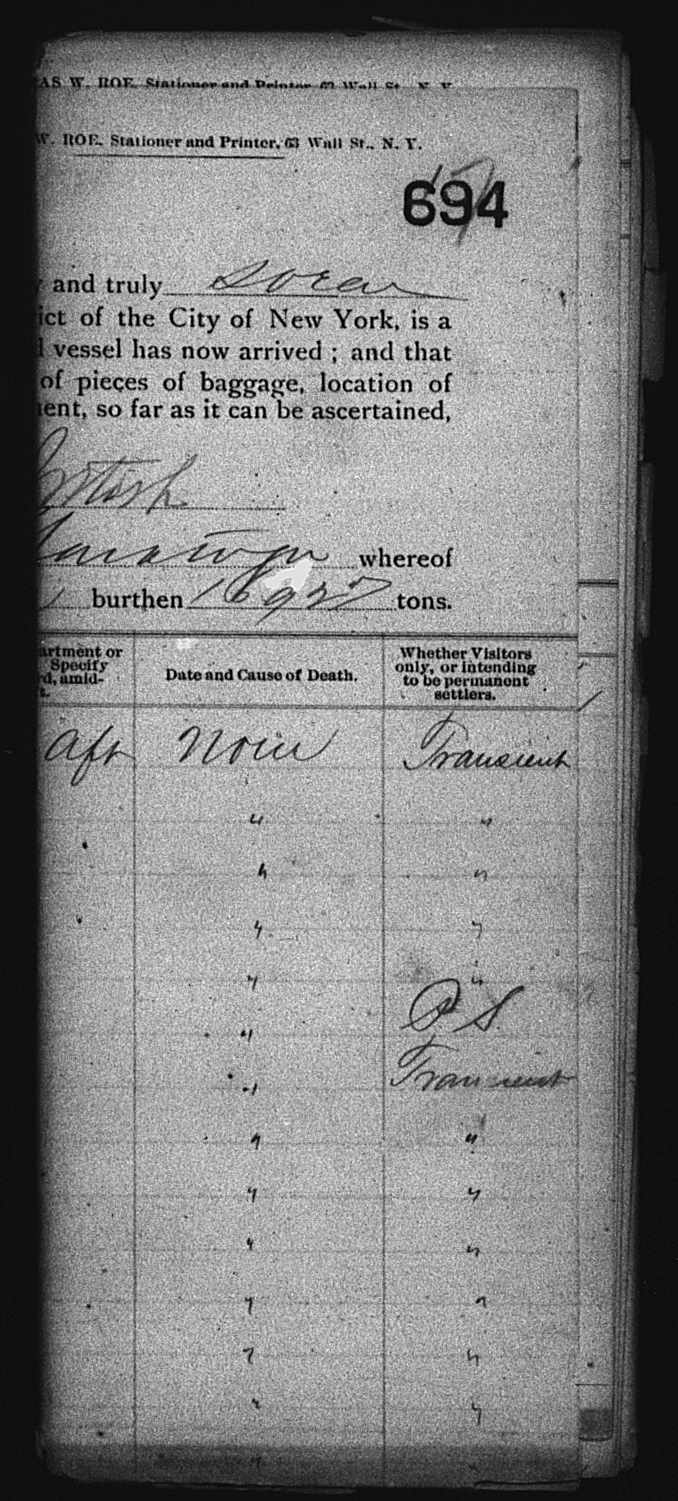 AS W. ROE, Stationer and Printer, 63 Wall St., N. Y.
W. ROE, Stationer and Printer, 63 Wall St., N. Y.
694
and truly swear
ict of the City of New York, is a
vessel has now arrived ; and that
of pieces of baggage, location of
ent, so far as it can be ascertained,
ntosh
Saratoga whereof
burthen tons.
artment or
Specify
rd, amid-
t.
Date and Cause of Death.
Whether Visitors
only, or intending
to be permanent
settlers.
Aft None Transient
" "
" "
" "
" "
" P S
" Transient
" "
" "
" "
" "
" "
" "
"